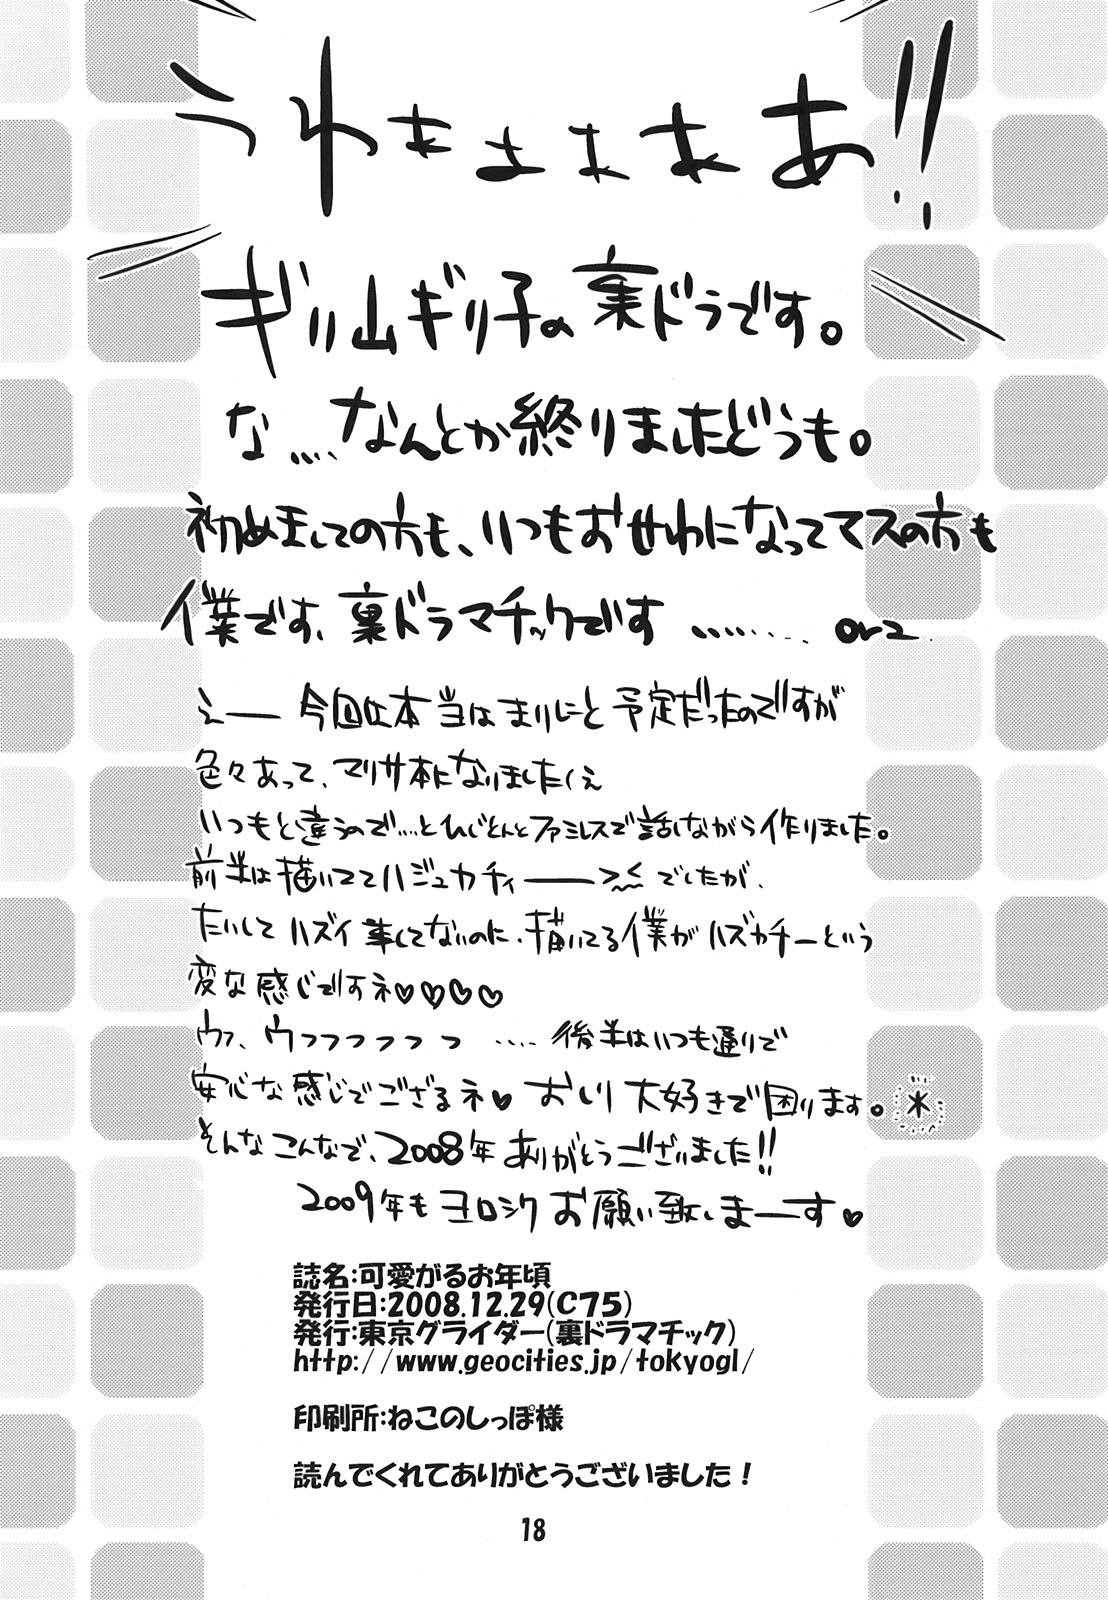 うわぁぁぁぁあ!!
ギリ山ギリ子の裏ドラです。
な....なんとか終りましたどうも。
初めましての方も、いつもおせわになってマスの方も
僕です、裏ドラマチックです ........ orz
えー 今回は本当はまりにと予定だったのですが
色々あって、マリサ本になりましたくぇ
いつもと違うので....とひじとんとファミレスで話しながら作りました。
前半は描いててハジュカチィーー><でしたが、
たいしてハズイ事してないのに、描いてる僕がハズカチーという
変な感じですネ♡♡♡♡
ウフ、ウフフフフフフ .... 後半はいつも通りで
安心な感じでござるネ♥ おしり大好きで困ります。
そんなこんなで、2008年ありがとうございました!!
2009年もヨロシクお願い致しまーーす♥
誌名:可愛がるお年頃
発行日:2008.12.29(C75)
発行:東京グライダー(裏ドラマチック)
http://www.geocities.jp/tokyogl/
印刷所:ねこのしっぽ様
読んでくれてありがとうございました!
18